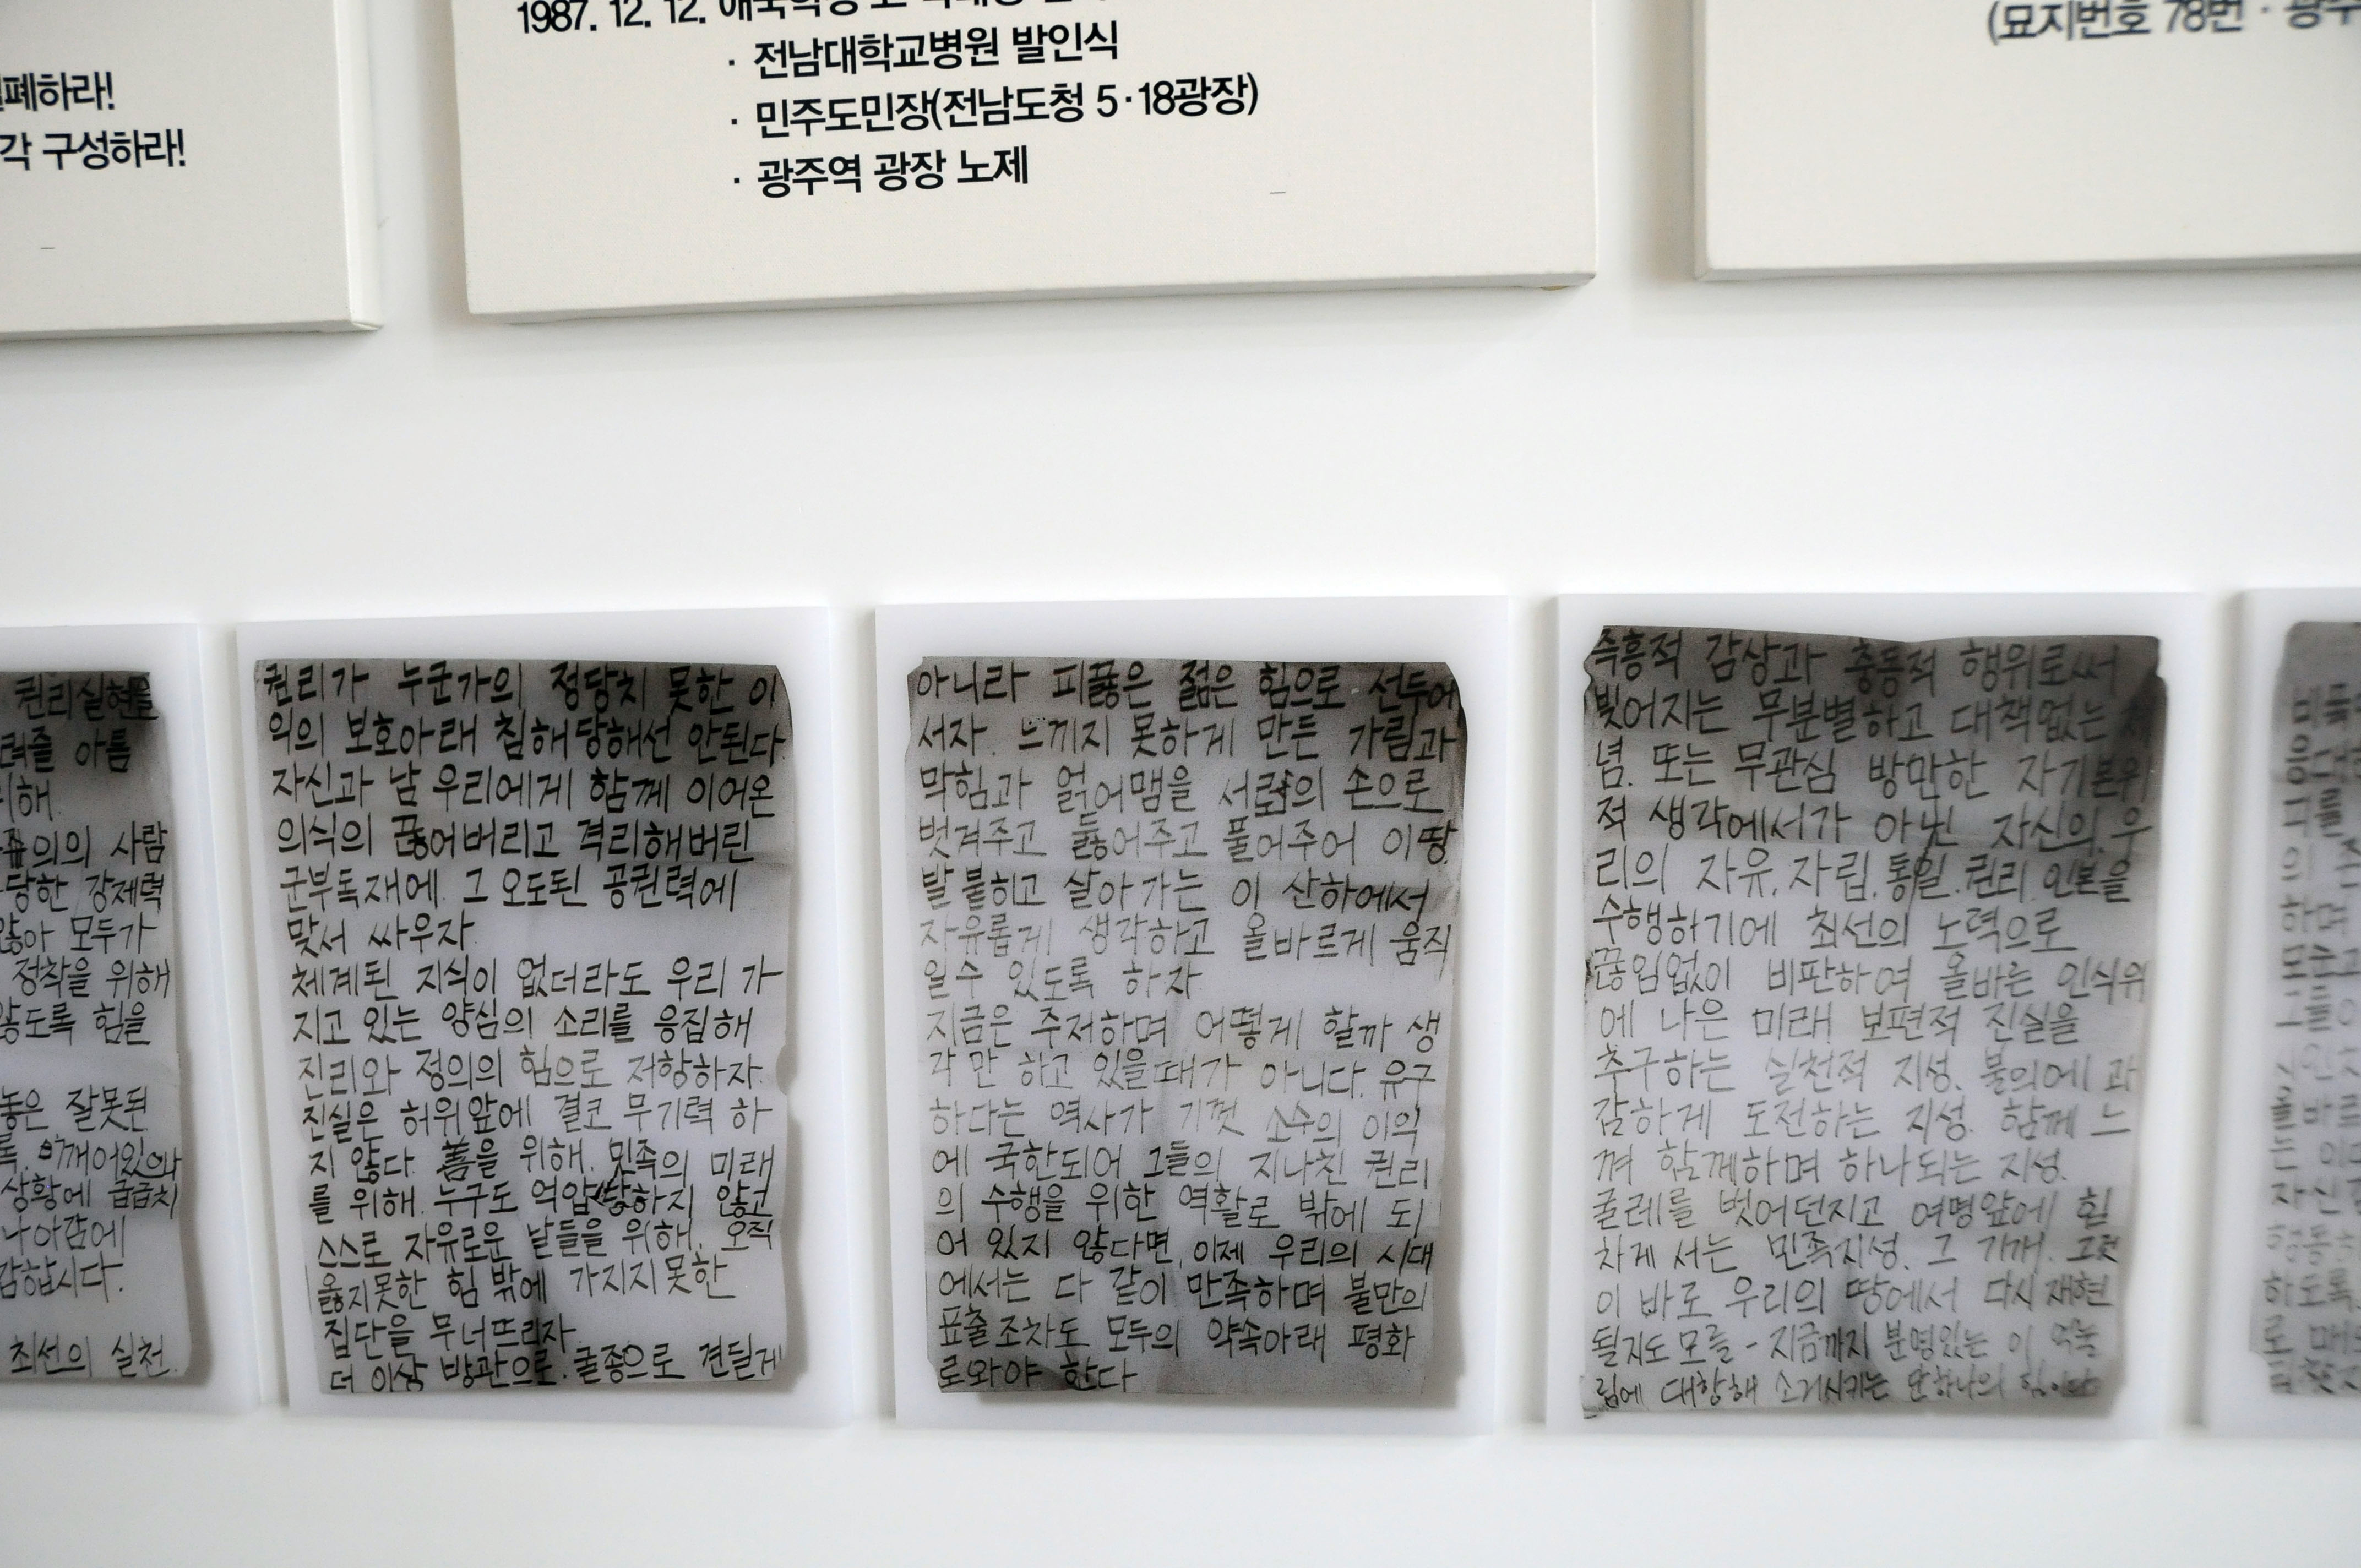 폐하라!
각 구성하라!
1987. 12. 12.
· 전남대학교병원 발인식
· 민주도민장(전남도청 5·18광장)
· 광주역 광장 노제
(묘지번호 78번 ·
권리실현을
아름
위해
의의 사람
당한 강제력
않아 모두가
정착을 위해
않도록 힘을
놓은 잘못된
상황에 급급치
나아감에
감합시다.
최선의 실천.
권리가 누군가의 정당치 못한 이
익의 보호아래 침해당해선 안된다.
자신과 남 우리에게 함께 이어온
의식의 끊어버리고 격리해버린
군부독재에. 그 오도된 공권력에
맞서 싸우자
체계된 지식이 없더라도 우리 가
지고 있는 양심의 소리를 응집해
진리와 정의의 힘으로 저항하자.
진실은 허위앞에 결코 무기력 하
지 않다. 善을 위해. 민족의 미래
를 위해. 누구도 억압당하지 않고
스스로 자유로운 날들을 위해. 오직
옳지못한 힘 밖에 가지지못한
집단을 무너뜨리자
더 이상 방관으로. 굴종으로 견딜게
아니라 피끓은 젊은 힘으로 선두에
서자. 느끼지 못하게 만든 가림과
막힘과 얽어맴을 서로의 손으로
벗겨주고 뚫어주고 풀어주어 이땅
발붙히고 살아가는 이 산하에서
자유롭게 생각하고 올바르게 움직
일수 있도록 하자
지금은 주저하며 어떻게 할까 생
각만 하고 있을때가 아니다. 유구
하다는 역사가 기껏 소수의 이익
에 국한되어 그들의 지나친 권리
의 수행을 위한 역활로 밖에 되
어 있지 않다면, 이제 우리의 시대
에서는 다 같이 만족하며 불만의
표출조차도 모두의 약속아래 평화
로와야 한다
즉흥적 감상과 충동적 행위로써
빚어지는 무분별하고 대책없는
념. 또는 무관심 방만한 자기본위
적 생각에서가 아닌 자신의. 우
리의 자유. 자립. 통일. 권리. 인본을
수행하기에 최선의 노력으로
끊임없이 비판하여 올바른 인식위
에 나은 미래 보편적 진실을
추구하는 실천적 지성. 불의에 과
감하게 도전하는 지성. 함께 느
껴 함께하며 하나되는 지성.
굴레를 벗어던지고 여명앞에 힘
차게 서는 민족지성. 그 기개. 그것
이 바로 우리의 땅에서 다시 재현
될지도모를 - 지금까지 분명있는 이 억눌
림에 대항해 소거시키는 단하나의 힘이다